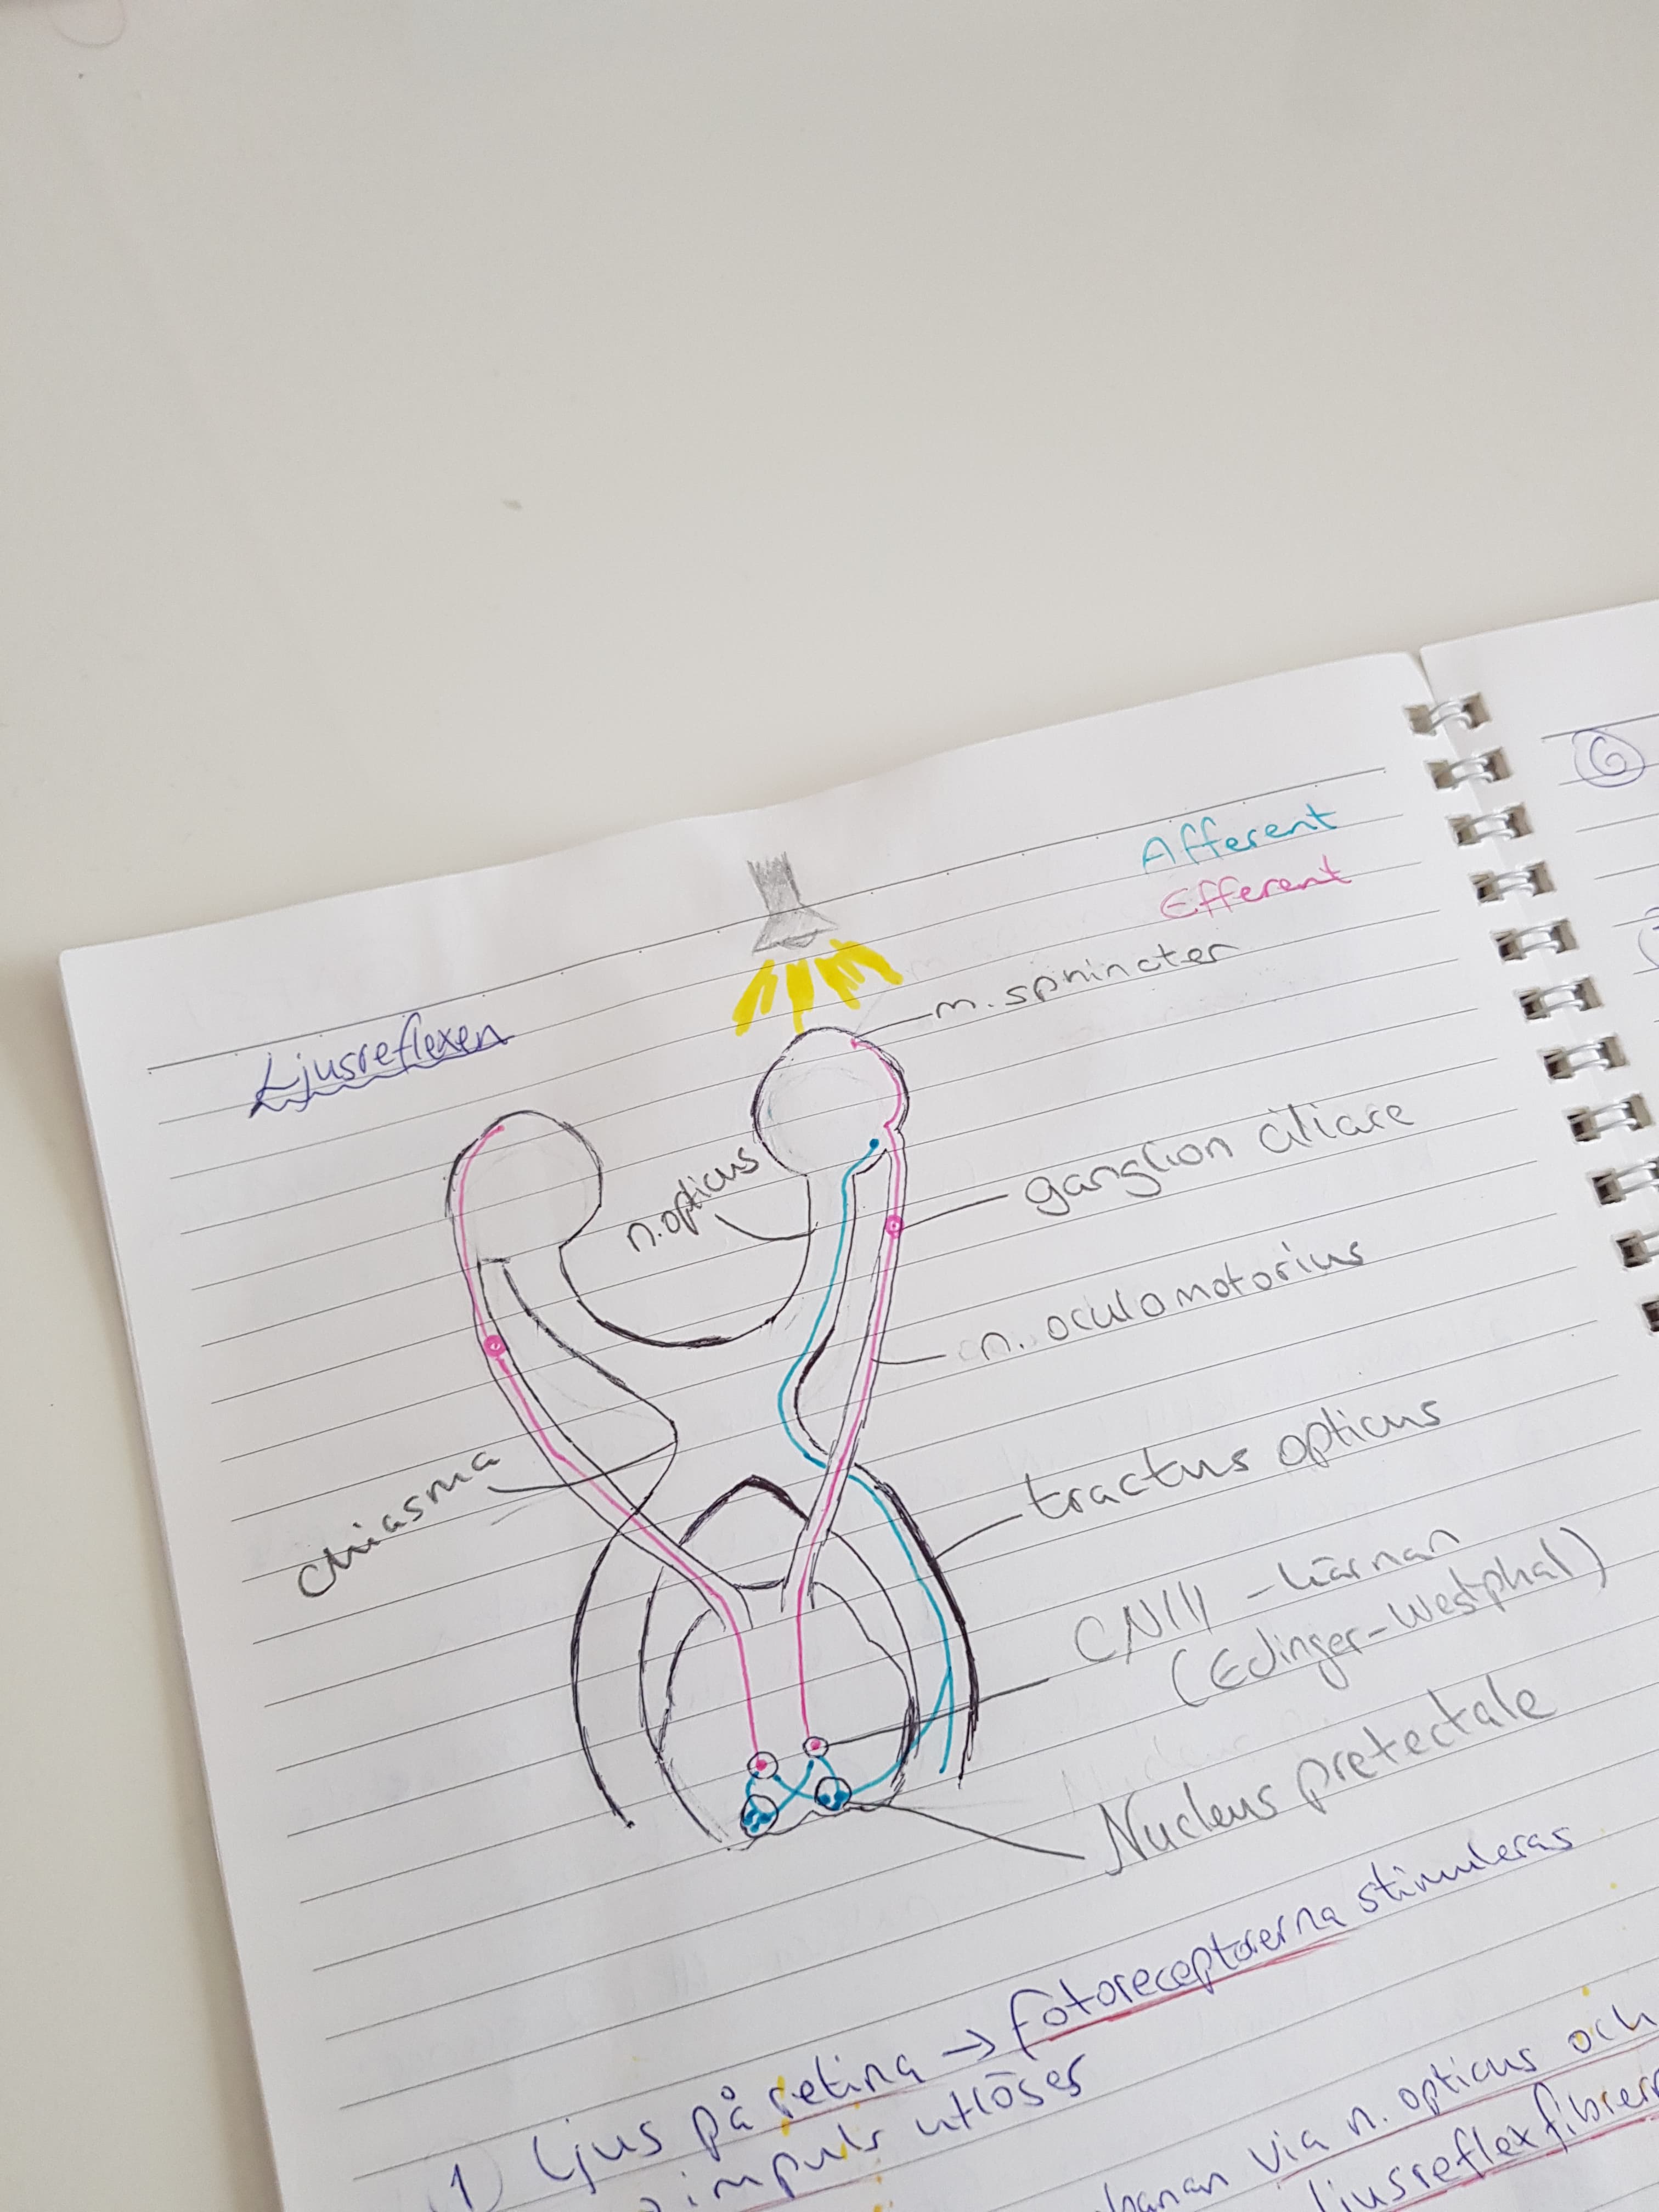 Afferent
Efferent
m. sphincter
Ljusreflexen
n. opticus
ganglion ciliare
n. oculomotorius
chiasma
tractus opticus
CNIII - kärnan
(Edinger-Westphal)
Nucleus pretectale
1) Ljus på retina → fotoreceptorerna stimuleras
impuls utlöses
banan via n. opticus och
ljusreflexfibrern
6